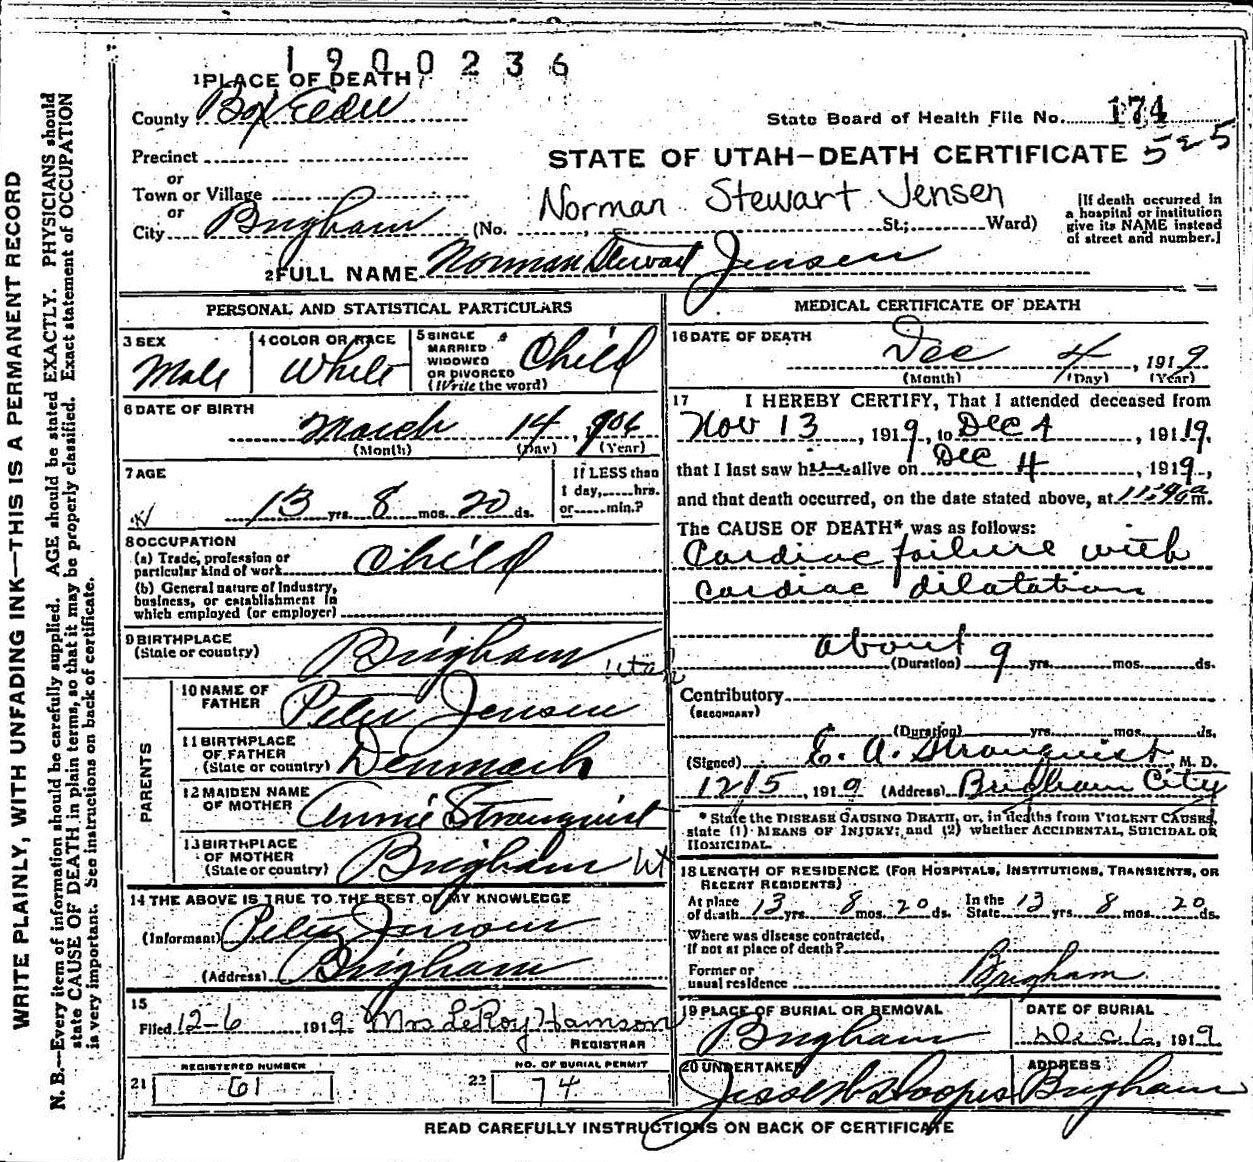 1900236
1 PLACE OF DEATH
County Box Elder
State Board of Health File No. 174
Precinct
STATE OF UTAH—DEATH CERTIFICATE 525
or
Town or Village
or
Norman Stewart Jensen
City Brigham (No. St.; Ward)
[If death occurred in
a hospital or institution
give its NAME instead
of street and number.]
2 FULL NAME Norman Stewart Jensen
PERSONAL AND STATISTICAL PARTICULARS
3 SEX
Male
4 COLOR OR RACE
White
5 SINGLE
MARRIED
WIDOWED
OR DIVORCED
(Write the word)
Child
6 DATE OF BIRTH
March 14, 906
(Month) (Day) (Year)
7 AGE
13 yrs. 8 mos. 20 ds.
If LESS than
1 day, hrs.
or min.?
8 OCCUPATION
(a) Trade, profession or
particular kind of work Child
(b) General nature of Industry,
business, or establishment in
which employed (or employer)
9 BIRTHPLACE
(State or country) Brigham Utah
PARENTS
10 NAME OF
FATHER Peter Jensen
11 BIRTHPLACE
OF FATHER
(State or country) Denmark
12 MAIDEN NAME
OF MOTHER Annie Stranquist
13 BIRTHPLACE
OF MOTHER
(State or country) Brigham Ut
14 THE ABOVE IS TRUE TO THE BEST OF MY KNOWLEDGE
(Informant) Peter Jensen
(Address) Brigham
15
Filed 12-6 1919. Mrs LeRoy Hamson
REGISTRAR
REGISTERED NUMBER
21 61
NO. OF BURIAL PERMIT
22 74
MEDICAL CERTIFICATE OF DEATH
16 DATE OF DEATH
Dec 4, 1919
(Month) (Day) (Year)
17 I HEREBY CERTIFY, That I attended deceased from
Nov 13, 1919, to Dec 4, 19119.
that I last saw him alive on Dec 4, 1919,
and that death occurred, on the date stated above, at m.
The CAUSE OF DEATH* was as follows:
Cardiac failure with
cardiac dilatation
about 9
(Duration) yrs. mos. ds.
Contributory
(SECONDARY)
(Duration) yrs. mos. ds.
(Signed) E. A. Stranquist, M. D.
12/5, 1919 (Address) Brigham City
* State the DISEASE CAUSING DEATH, or, in deaths from VIOLENT CAUSES,
state (1) MEANS OF INJURY; and (2) whether ACCIDENTAL, SUICIDAL OR
HOMICIDAL.
18 LENGTH OF RESIDENCE (FOR HOSPITALS, INSTITUTIONS, TRANSIENTS, OR
RECENT RESIDENTS)
At place
of death 13 yrs. 8 mos. 20 ds.
In the
State 13 yrs. 8 mos. 20 ds.
Where was disease contracted,
if not at place of death?
Former or
usual residence Brigham
19 PLACE OF BURIAL OR REMOVAL
Brigham
DATE OF BURIAL
Dec 6, 1919
20 UNDERTAKER
ADDRESS
Brigham
READ CAREFULLY INSTRUCTIONS ON BACK OF CERTIFICATE
WRITE PLAINLY, WITH UNFADING INK—THIS IS A PERMANENT RECORD
N. B.—Every item of information should be carefully supplied. AGE should be stated EXACTLY. PHYSICIANS should
state CAUSE OF DEATH in plain terms, so that it may be properly classified. Exact statement of OCCUPATION
is very important. See instructions on back of certificate.